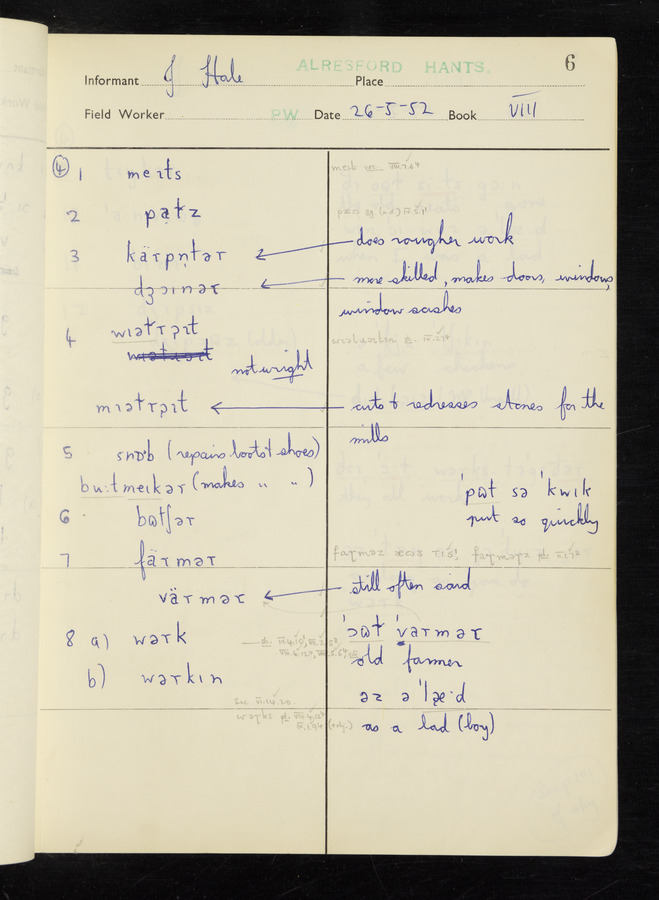 ALRESFORD HANTS. 6
Informant J Hale Place
Field Worker PW Date 26-5-52 Book VIII
④ 1 meɪts
2 pạɫz
3 kärpn̩tər ← does rougher work
dʒɔɪnər ← more skilled, makes doors, windows,
window sashes
4 wɪəɫrɪɪt
not wright
mɪəɫrɪɪt ← cuts & redresses stones for the
mills
5 snɒb (repairs boots & shoes)
bu:tmeɪkər (makes " " )
ˈpʊt sə ˈkwɪk
put so quickly
6 bʊtʃər
7 färmər
värmər ← still often said
8 a) wərk
ˈɔʊɫ ˈvarmər
old farmer
b) wərkɪn
əz ə ˈlæ·d
as a lad (boy)